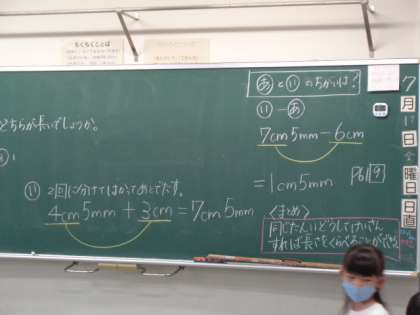 ちくちくことば
どちらが長いでしょうか。
い 2回に分けてはかってあとでたす。
4cm5mm + 3cm = 7cm5mm
あといのちがいは?
い - あ
7cm5mm - 6cm
= 1cm5mm
P61 9
<まとめ>
同じたんいどうしでけいさん
すれば長さをくらべることができる
7
月
日
曜
日
日
直